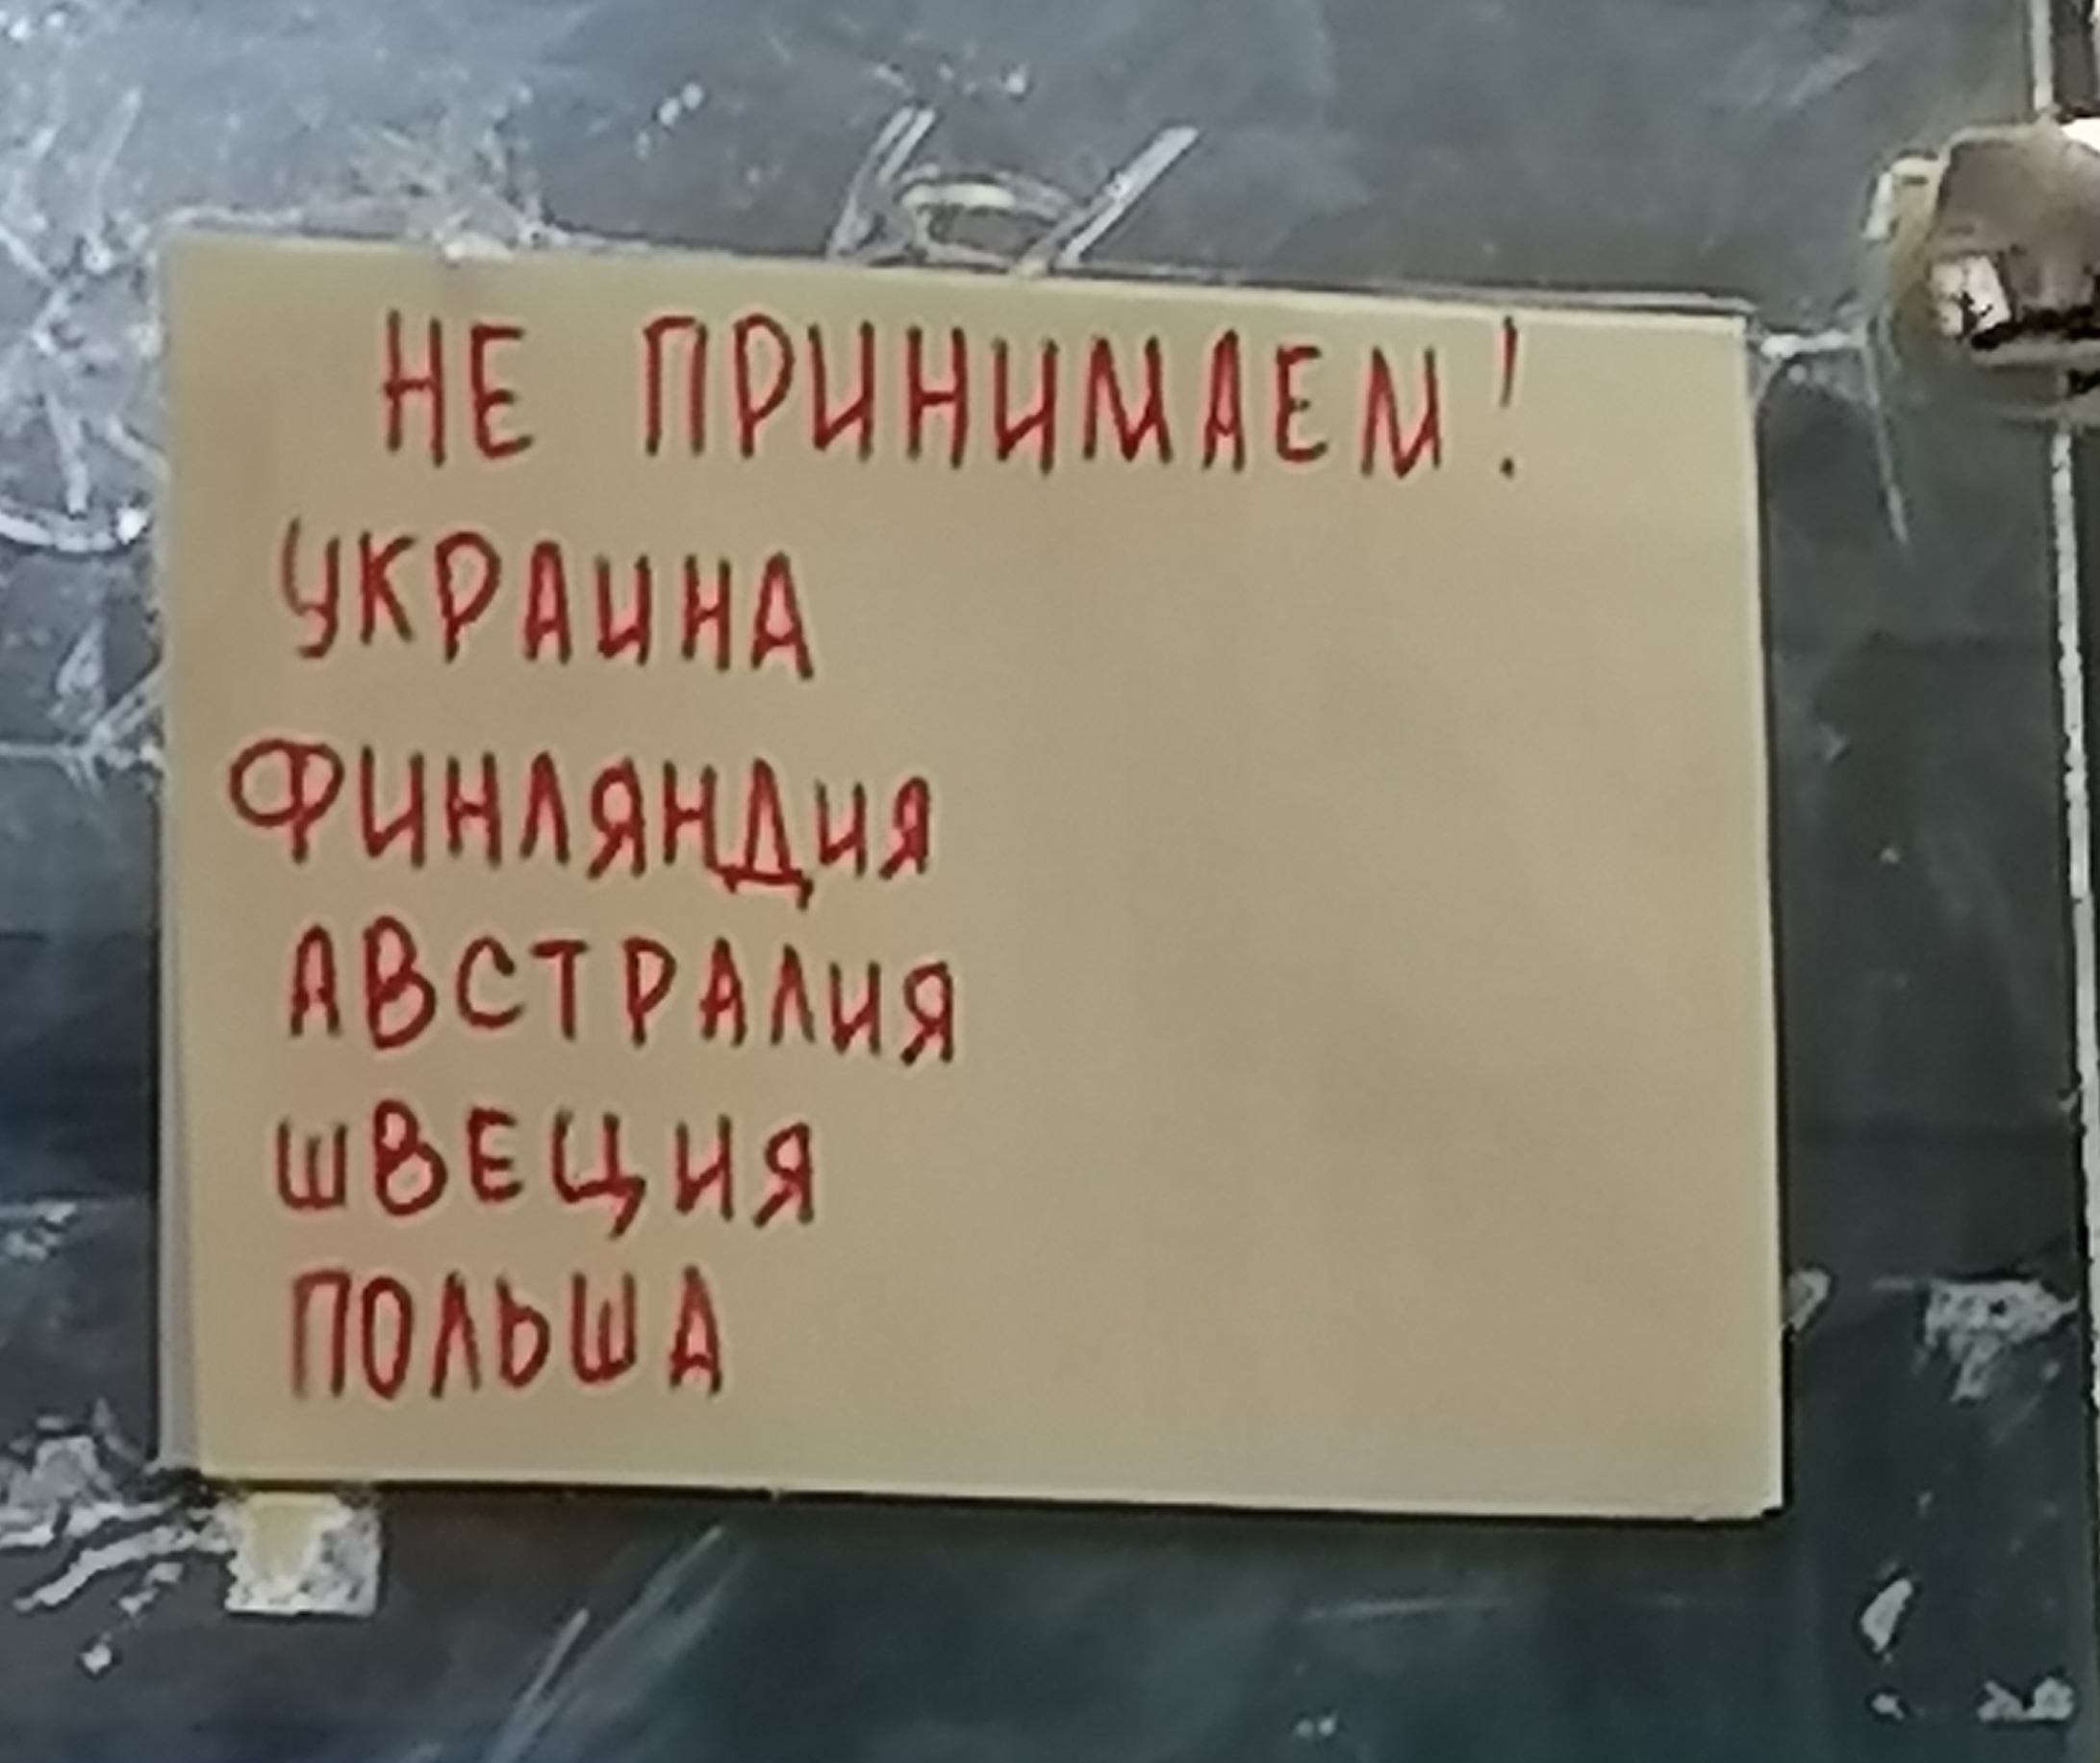 НЕ ПРИНИМАЕМ!
УКРАИНА
ФИНЛЯНДИЯ
АВСТРАЛИЯ
ШВЕЦИЯ
ПОЛЬША